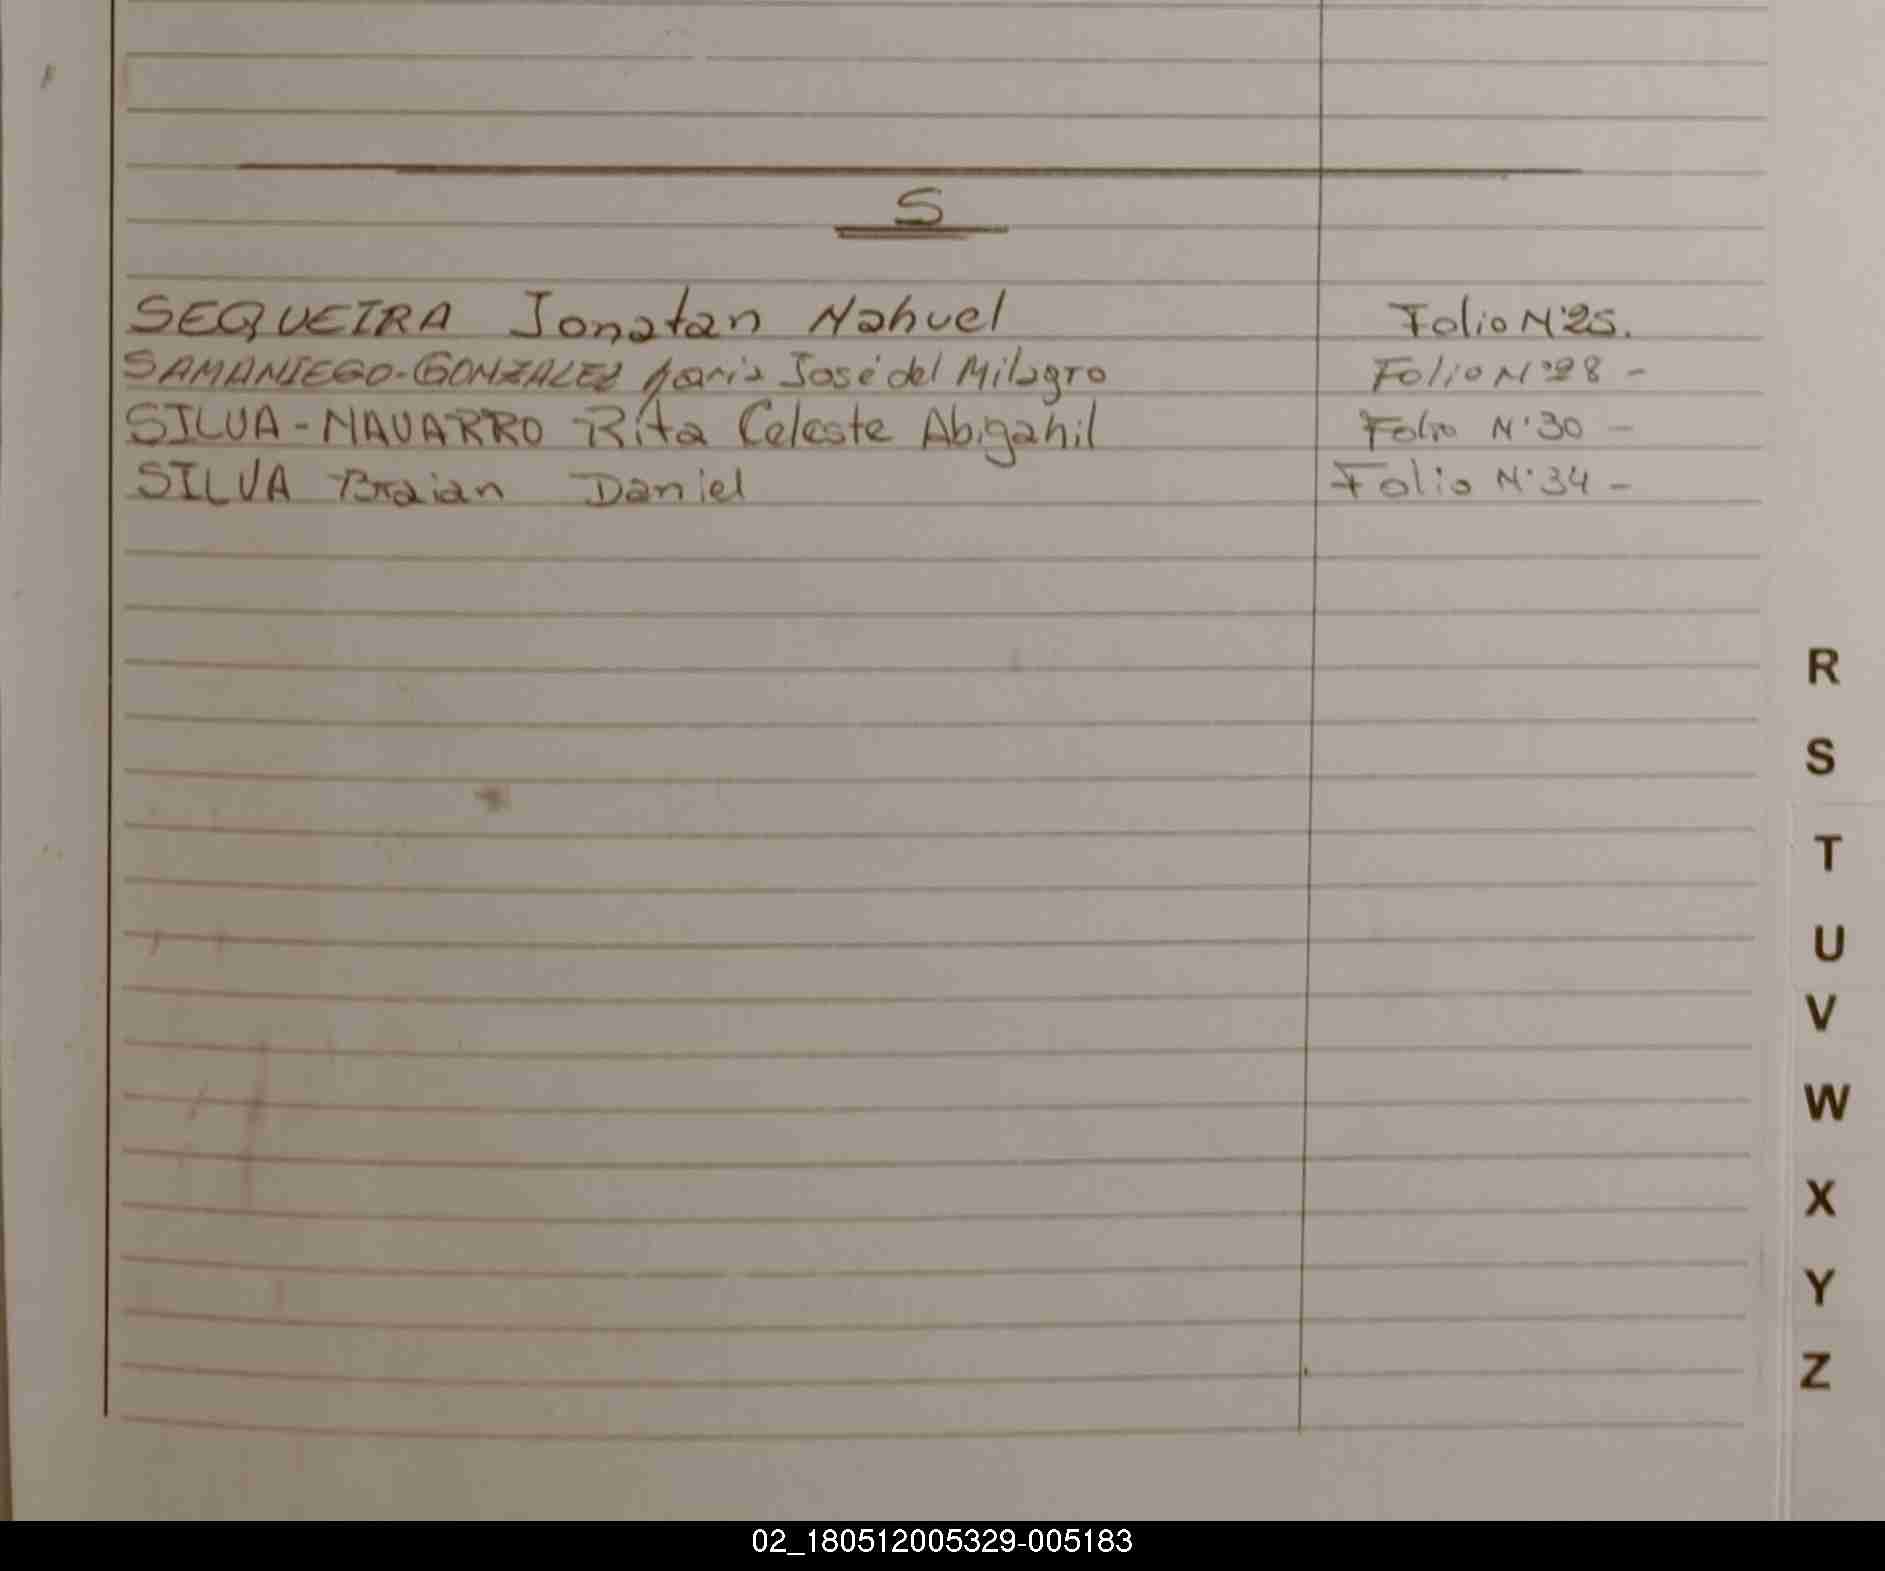 S
SEQUEIRA Jonatan Nahuel Folio N°25.
SAMANIEGO-GONZALEZ Maria José del Milagro Folio N°28 -
SILVA-NAVARRO Rita Celeste Abigahil Folio N°30 -
SILVA Braian Daniel Folio N°34 -
R
S
T
U
V
W
X
Y
Z
02_180512005329-005183